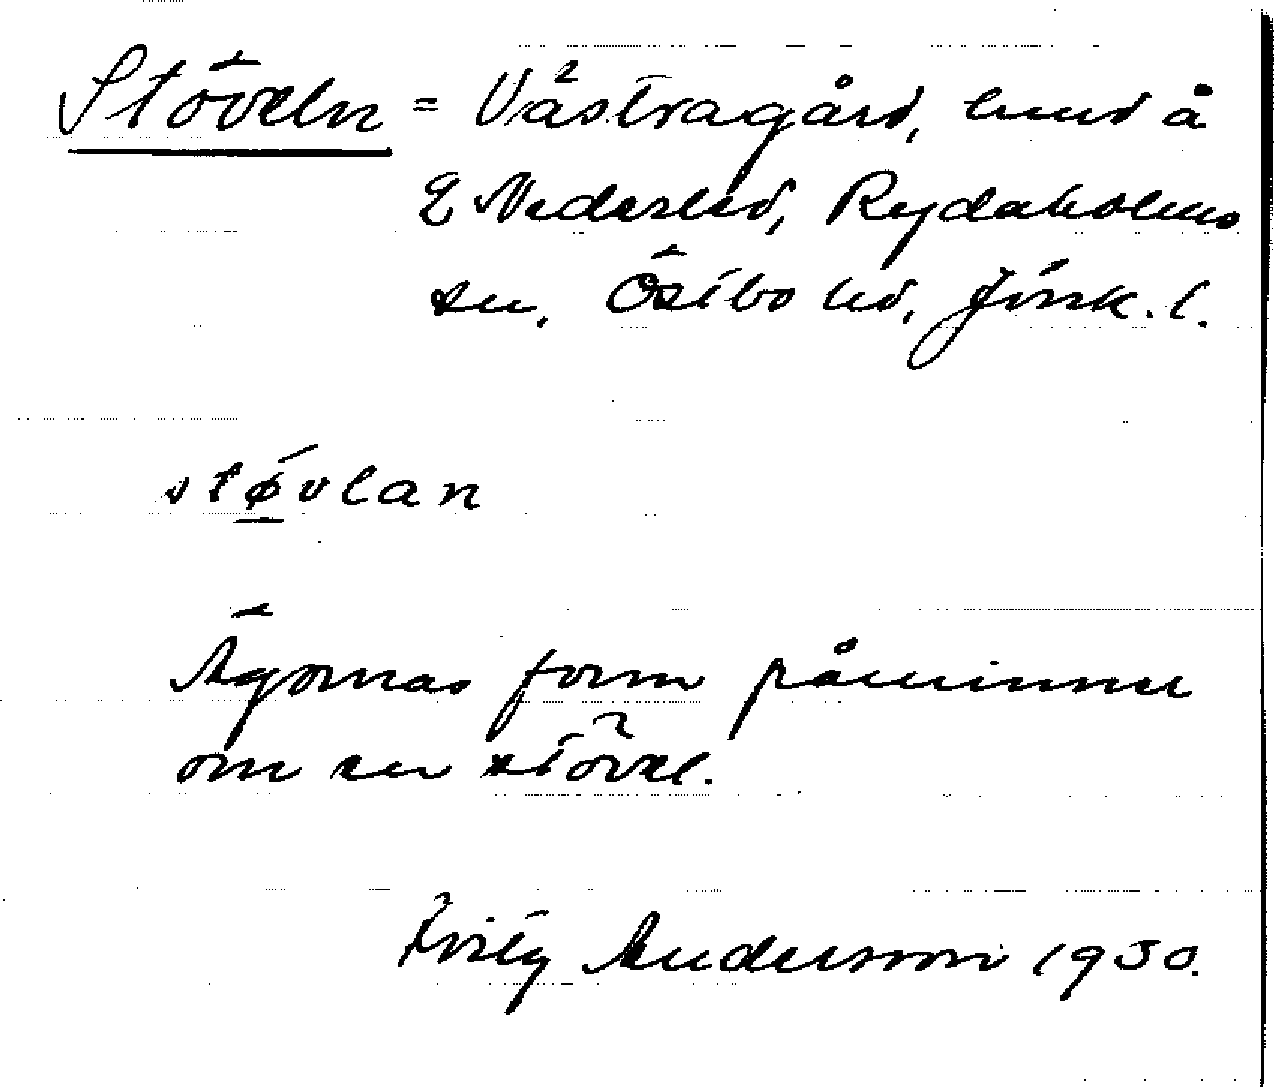 Stöveln = Västragård, hmd å
E Nederled, Rydaholms
sn, Östbo hd, Jönk. l.
støvlan
Ägornas form påminner
om en stövel.
Andersson 1930.